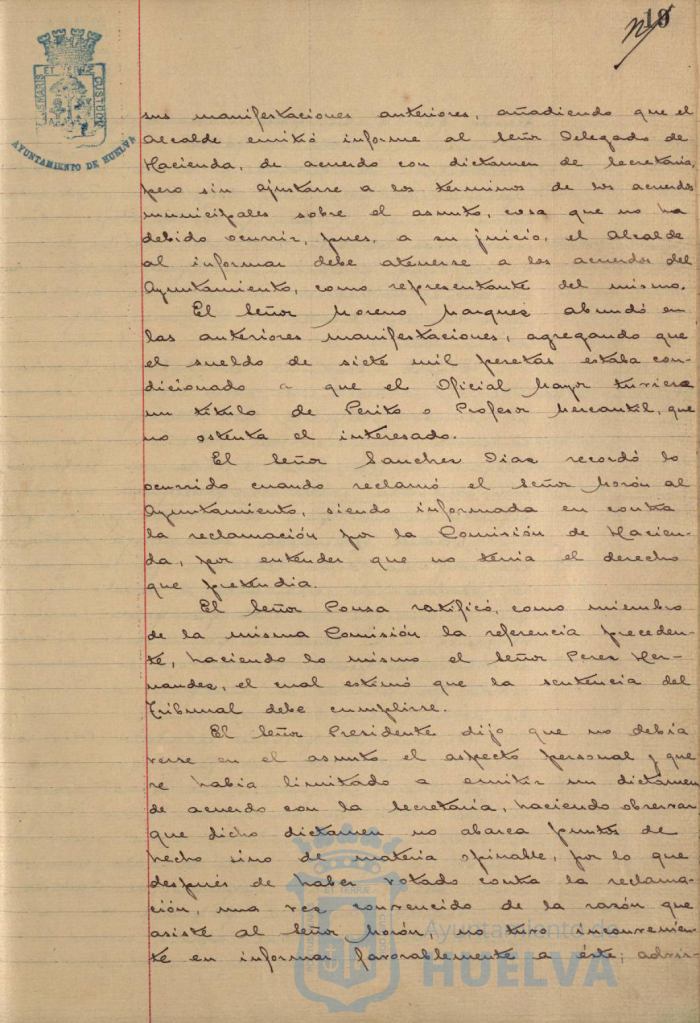 19
PORTUS MARIS ET TERRÆ CUSTODIA
AYUNTAMIENTO DE HUELVA
sus manifestaciones anteriores, añadiendo que el
Alcalde emitió informe al Señor Delegado de
Hacienda, de acuerdo con dictamen de Secretaría,
pero sin ajustarse a los terminos de los acuerdos
municipales sobre el asunto, cosa que no ha
debido ocurrir, pues, a su juicio, el Alcalde
al informar debe atenerse a los acuerdos del
Ayuntamiento, como representante del mismo.
El Señor Moreno Marquez abundó en
las anteriores manifestaciones, agregando que
el sueldo de siete mil pesetas estaba con-
dicionado a que el Oficial Mayor tuviera
un título de Perito o Profesor Mercantil, que
no ostenta el interesado.
El Señor Sanchez Diaz recordó lo
ocurrido cuando reclamó el Señor Morón al
Ayuntamiento, siendo informada en contra
la reclamación por la Comisión de Hacien-
da, por entender que no tenia el derecho
que pretendia.
El Señor Ponsa ratificó, como miembro
de la misma Comisión la referencia preceden-
te, haciendo lo mismo el Señor Perez Her-
nandez, el cual estimó que la sentencia del
Tribunal debe cumplirse.
El Señor Presidente dijo que no debia
verse en el asunto el aspecto personal y que
se habia limitado a emitir un dictámen
de acuerdo con la Secretaría, haciendo observar
que dicho dictamen no abarca puntos de
hecho sino de materia opinable, por lo que
después de haber votado contra la reclama-
ción, una vez convencido de la razón que
asiste al Señor Morón, no tuvo inconvenien-
te en informar favorablemente a éste; advir-
Ayuntamiento de
HUELVA